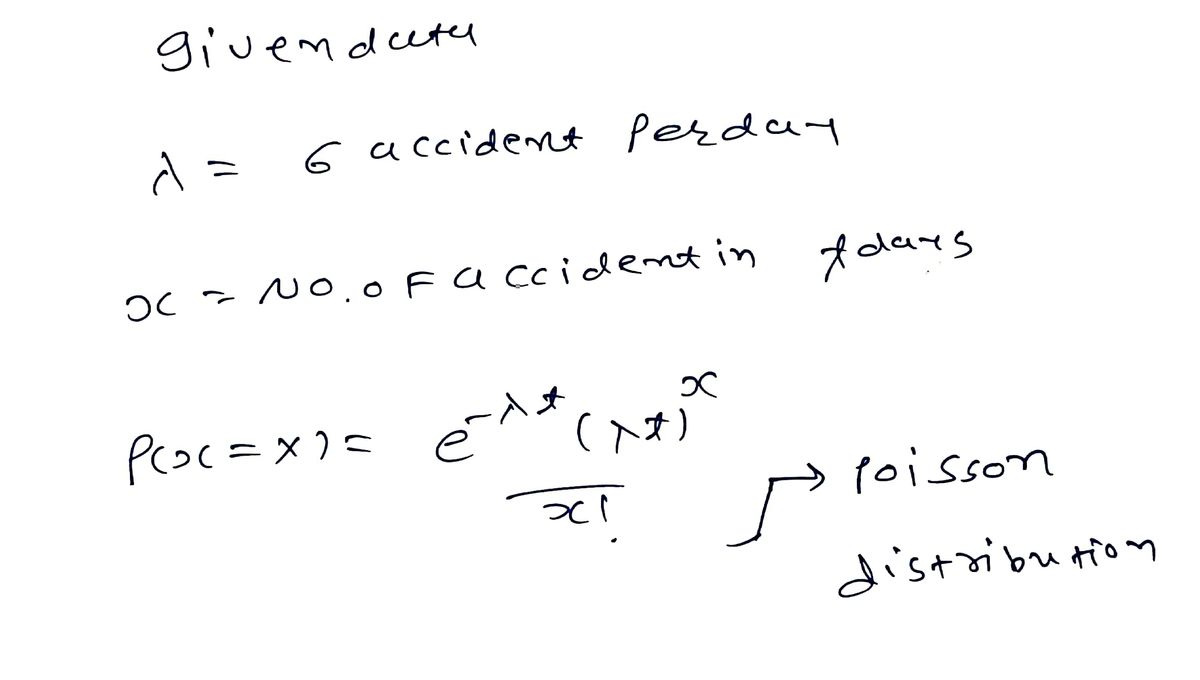 given data
λ = 6 accident Perday
x = NO. OF accident in t days
P(x = X) = e^{-λt} (λt)^x / x!
→ Poisson
distribution